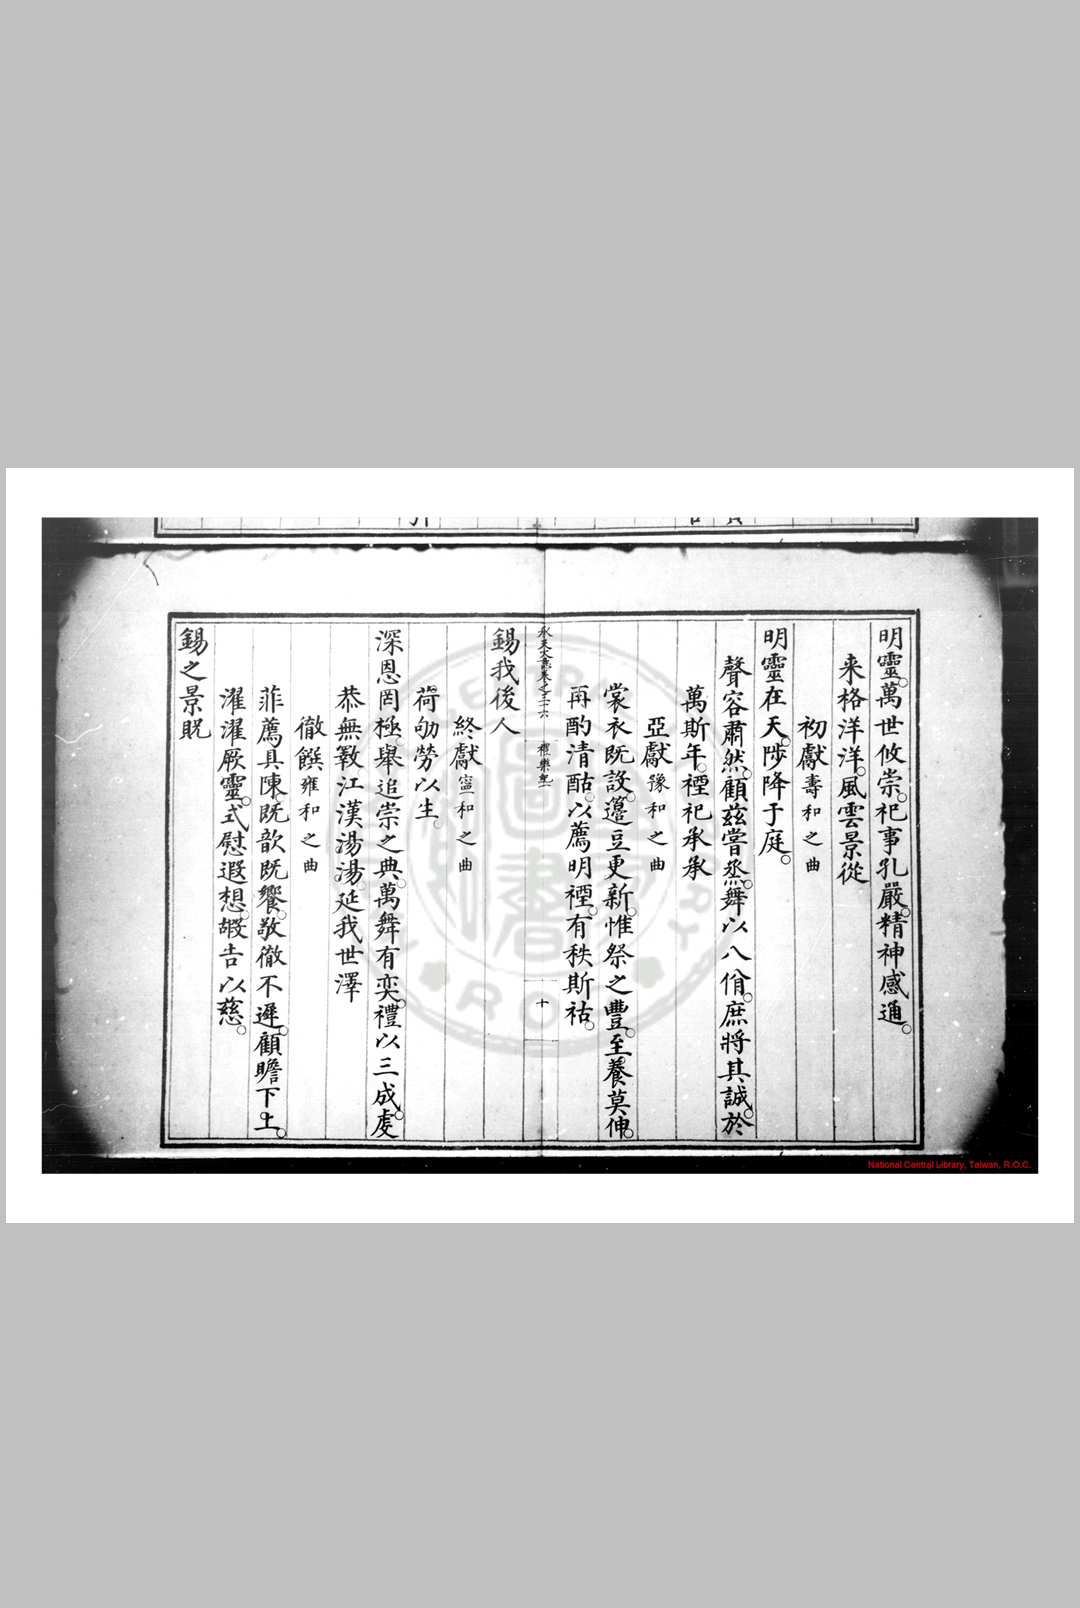 明靈。萬世攸崇。祀事孔嚴。精神感通。
来格洋洋。風雲景從
初獻壽和之曲
明靈在天。陟降于庭。
聲容肅然。顧茲嘗烝。舞以八佾。庶將其誠。於
萬斯年。禋祀承承
亞獻豫和之曲
裳衣既設。籩豆更新。惟祭之豐。至養莫伸。
再酌清酤。以薦明禋。有秩斯祜。
承天大志卷之三十六 禮樂紀一
十
錫我後人
終獻寧和之曲
荷劬勞以生。
深恩罔極。舉追崇之典。萬舞有奕。禮以三成。虔
恭無斁。江漢湯湯。延我世澤
徹饌雍和之曲
菲薦具陳。既歆既饗。敬徹不遲。顧瞻下上。
濯濯厥靈。式慰遐想。嘏告以慈。
錫之景貺
National Central Library, Taiwan, R.O.C.